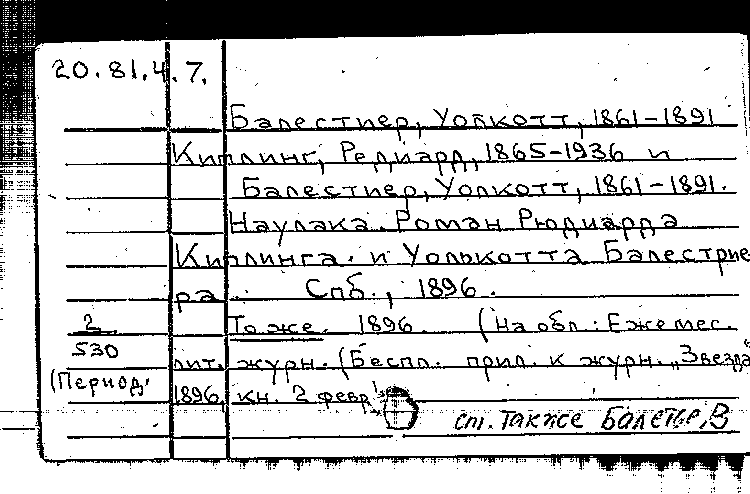 20.81.4.7.
Балестиер, Уолкотт, 1861-1891
Киплинг, Редиард, 1865-1936 и
Балестиер, Уолкотт, 1861-1891.
Наулака. Роман Рюдиарда
Киплинга. и Уолькотта Балестрие
ра. Спб., 1896.
2 То же. 1896. (На обл.: Ежемес.
530 лит. журн. (Беспл. прил. к журн. „Звезда"
(Период. 1896, кн. 2 февр.
см. также Балетье, В